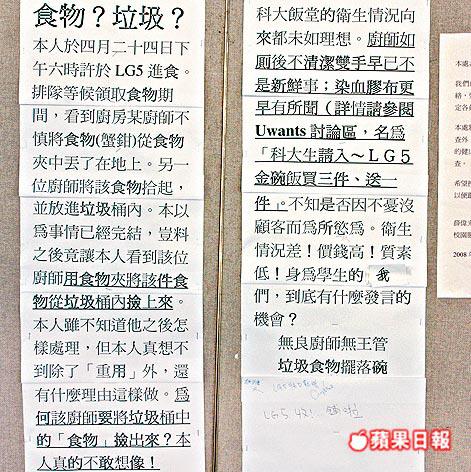 食物？垃圾？
本人於四月二十四日下
午六時許於 LG5 進食。
排隊等候領取食物期
間，看到廚房某廚師不
慎將食物(蟹鉗)從食物
夾中丟了在地上。另一
位廚師將該食物拾起，
並放進垃圾桶內。本以
為事情已經完結，豈料
之後竟讓本人看到該位
廚師用食物夾將該件食
物從垃圾桶內撿上來。
本人雖不知道他之後怎
樣處理，但本人真想不
到除了「重用」外，還
有什麼理由這樣做。為
何該廚師要將垃圾桶中
的「食物」撿出來？本
人真的不敢想像！
科大飯堂的衛生情況向
來都未如理想。廚師如
廁後不清潔雙手早已不
是新鮮事；染血膠布更
早有所聞（詳情請參閱
Uwants 討論區，名為
「科大生請入～LG5
金碗飯買三件、送一
件」。不知是否因不憂沒
顧客而為所欲為。衛生
情況差！價錢高！質素
低！身為學生的 我
們，到底有什麼發言的
機會？
無良廚師無王管
垃圾食物擺落碗
本處
我們
絡，
定各
本處
查外
的健
查。
希望
以便
薛偉
校園
2008
蘋果日報